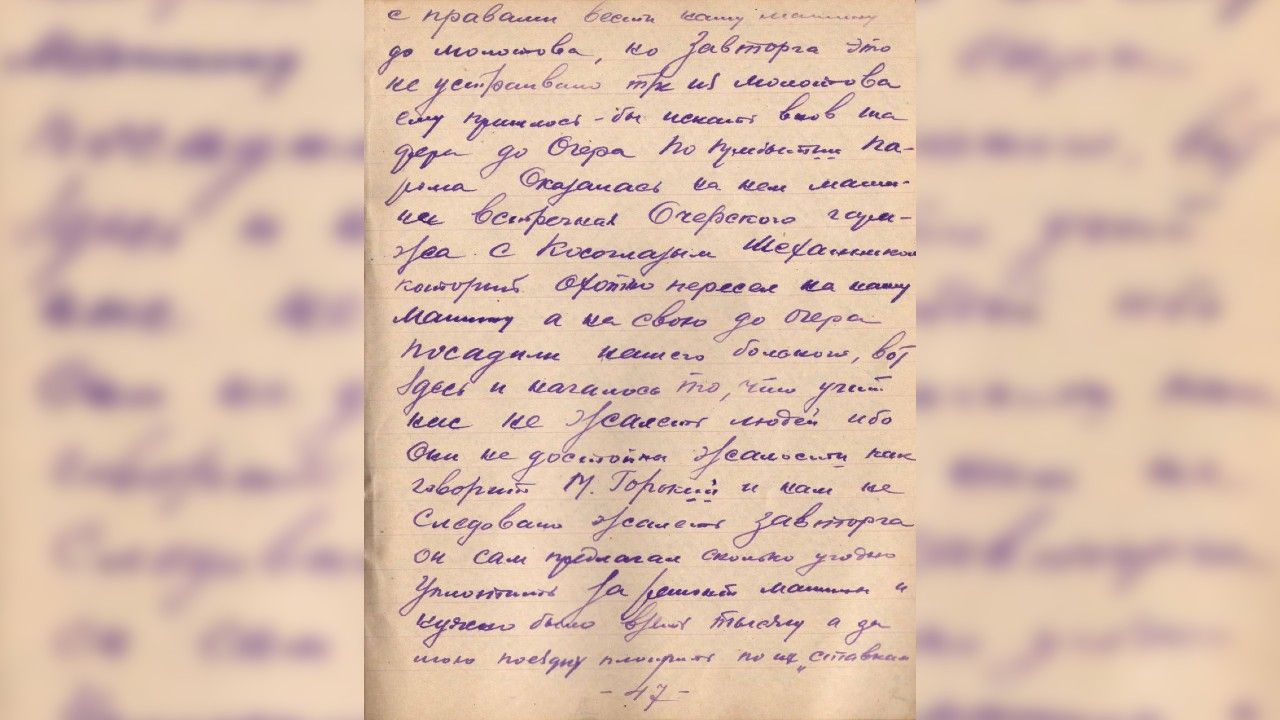 с правами вести нашу машину
до молотова, но Завторга это
не устраивало т/к из молотова
ему пришлось-бы искать внов шо
фера до Очера По прибытии па-
рома Оказалась на нем маши-
на встречная Очерского гара-
жа с Косоглазым Механиком
который охотно пересел на нашу
машину а на свою до очера
посадили нашего больного, вот
здесь и началось то, что учит
нас не жалеть людей ибо
Они не достойны жалости как
говорит М. Горький и нам не
Следовало жалеть завторга
он сам предлагал сколько угодно
Уплотить за ремонт машины и
нужно было взять тысячу а за
мою поездку плотить по их „ставкам
- 47 -